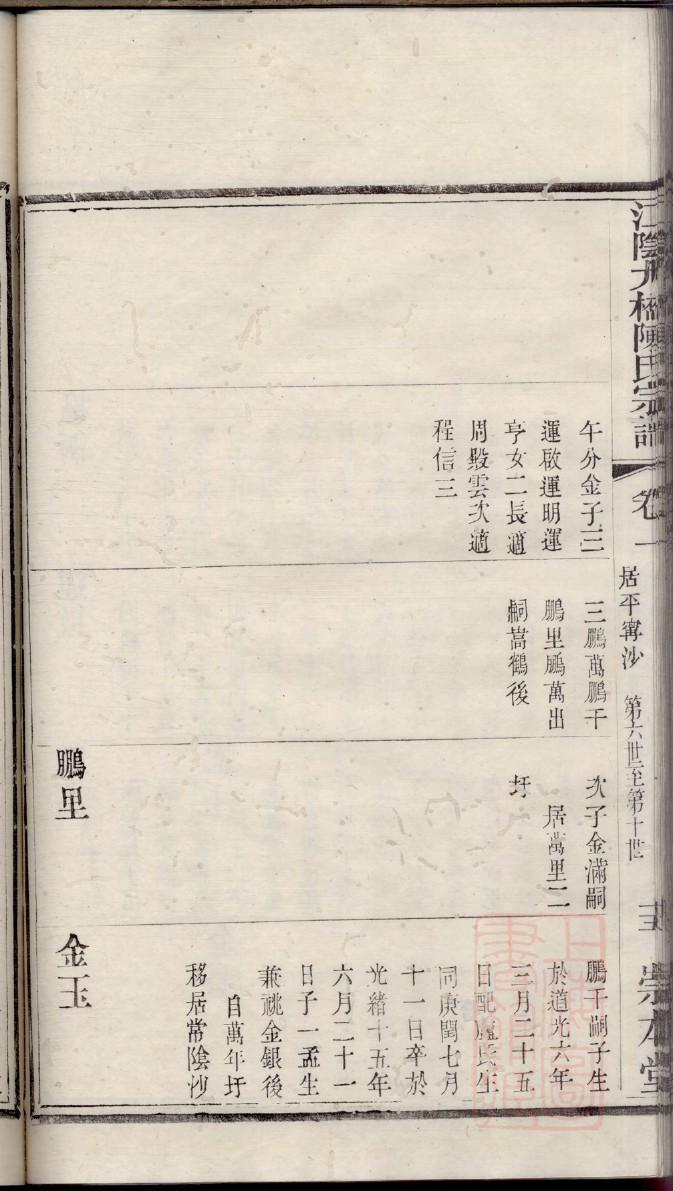 江陰九橋陳氏宗譜
卷一
居平寗沙
第六世至第十世
崇本堂
午分金子三
運啟運明運
亨女二長適
周殿雲次適
程信三
三鵬萬鵬千
鵬里鵬萬出
嗣嵩鶴後
次子金滿嗣
居萬里二
圩
鵬里
鵬千嗣子生
於道光六年
三月二十五
日配盧氏生
同庚閏七月
十一日卒於
光緒十五年
六月二十一
日子一孟生
兼祧金銀後
自萬年圩
移居常陰沙
金玉